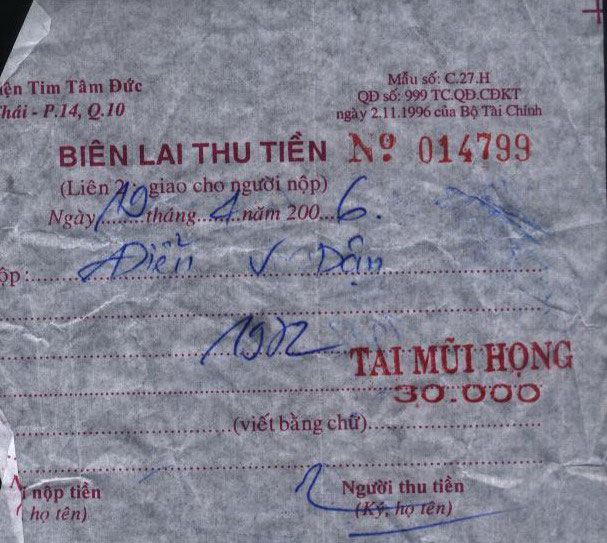 ện Tim Tâm Đức
Thái - P.14, Q.10
Mẫu số: C.27.H
QĐ số: 999 TC.QĐ.CĐKT
ngày 2.11.1996 của Bộ Tài Chính
BIÊN LAI THU TIỀN Nº 014799
(Liên 2 : giao cho người nộp)
Ngày 19 tháng 4 năm 200 6.
ộp : Điển V Dận
1902
TAI MŨI HỌNG
30.000
(viết bằng chữ)
i nộp tiền
họ tên)
Người thu tiền
(Ký, họ tên)